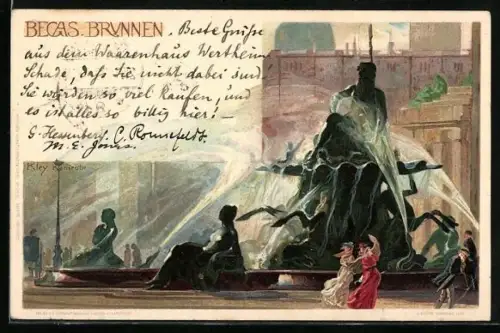 BEGAS. BRVNNEN, Beste Grüße
aus dem Waarenhaus Wertheim
Schade, daß Sie nicht dabei sind
Sie würden so viel kaufen, und
es ist alles so billig hier! –
G. Hessenberg. C. Ronnefeldt.
M. E. Jones.
Kley